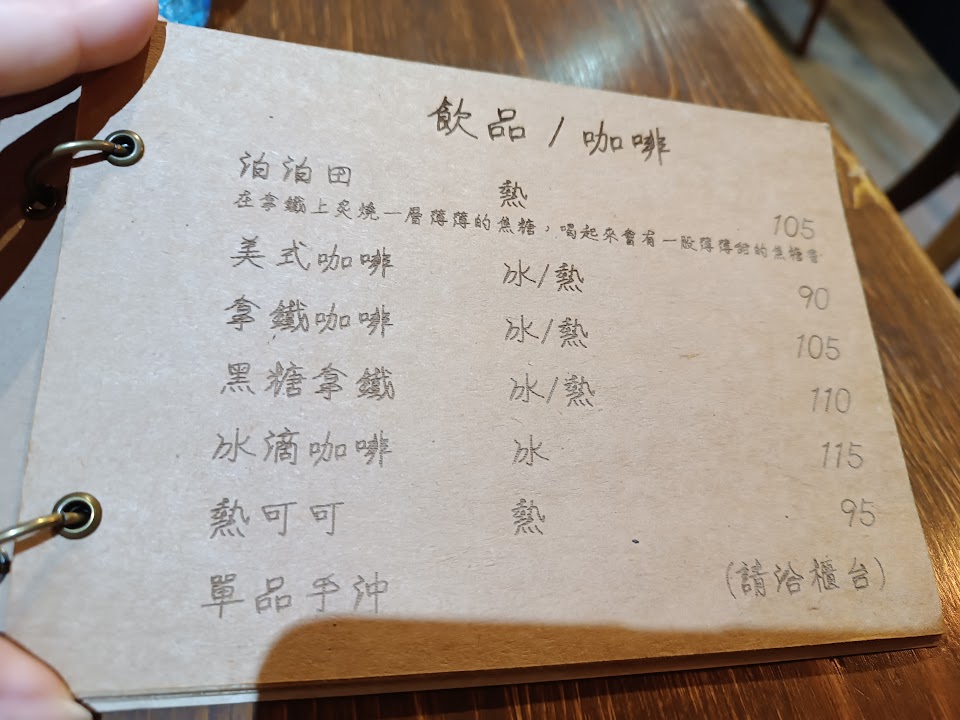 飲品 / 咖啡
泊泊田 熱 105
在拿鐵上炙燒一層薄薄的焦糖，喝起來會有一股薄薄甜的焦糖香
美式咖啡 冰/熱 90
拿鐵咖啡 冰/熱 105
黑糖拿鐵 冰/熱 110
冰滴咖啡 冰 115
熱可可 熱 95
單品手沖 (請洽櫃台)